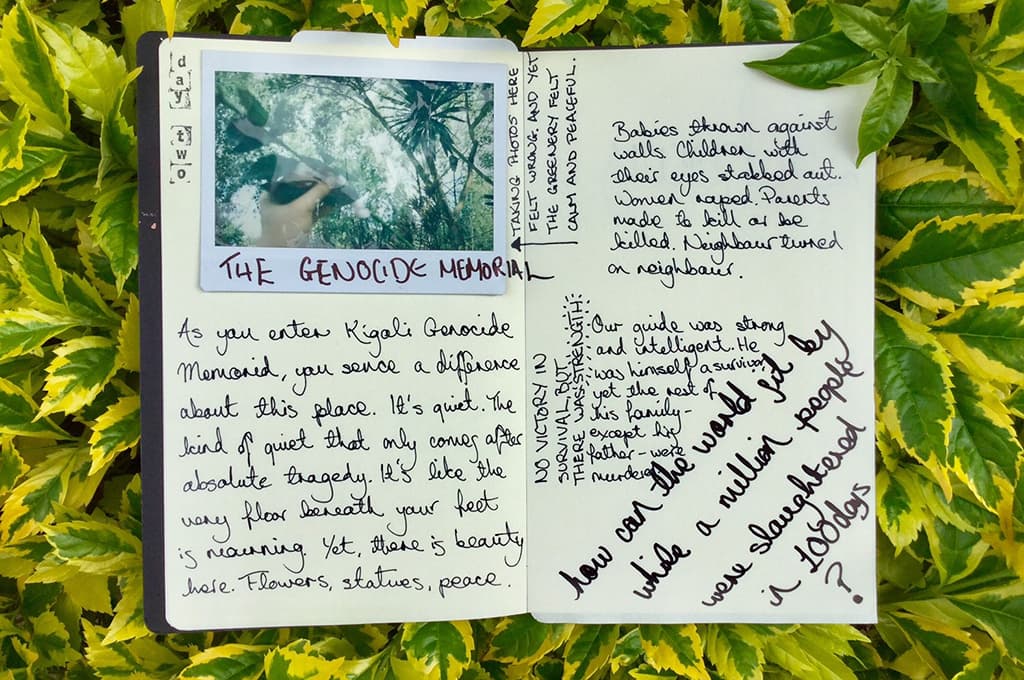 day two
THE GENOCIDE MEMORIAL
TAKING PHOTOS HERE
FELT WRONG. AND YET
THE GREENERY FELT
CALM AND PEACEFUL.
As you enter Kigali Genocide
Memorial, you sense a difference
about this place. It's quiet. The
kind of quiet that only comes after
absolute tragedy. It's like the
very floor beneath your feet
is mourning. Yet, there is beauty
here. Flowers, statues, peace.
Babies thrown against
walls. Children with
their eyes stabbed out.
Women raped. Parents
made to kill or be
killed. Neighbour turned
on neighbour.
NO VICTORY IN
SURVIVAL, BUT
THERE WAS STRENGTH.
Our guide was strong
and intelligent. He
was himself a survivor
yet the rest of
his family -
except his
father - were
murdered.
how can the world sit by
while a million people
were slaughtered
in 100 days
?